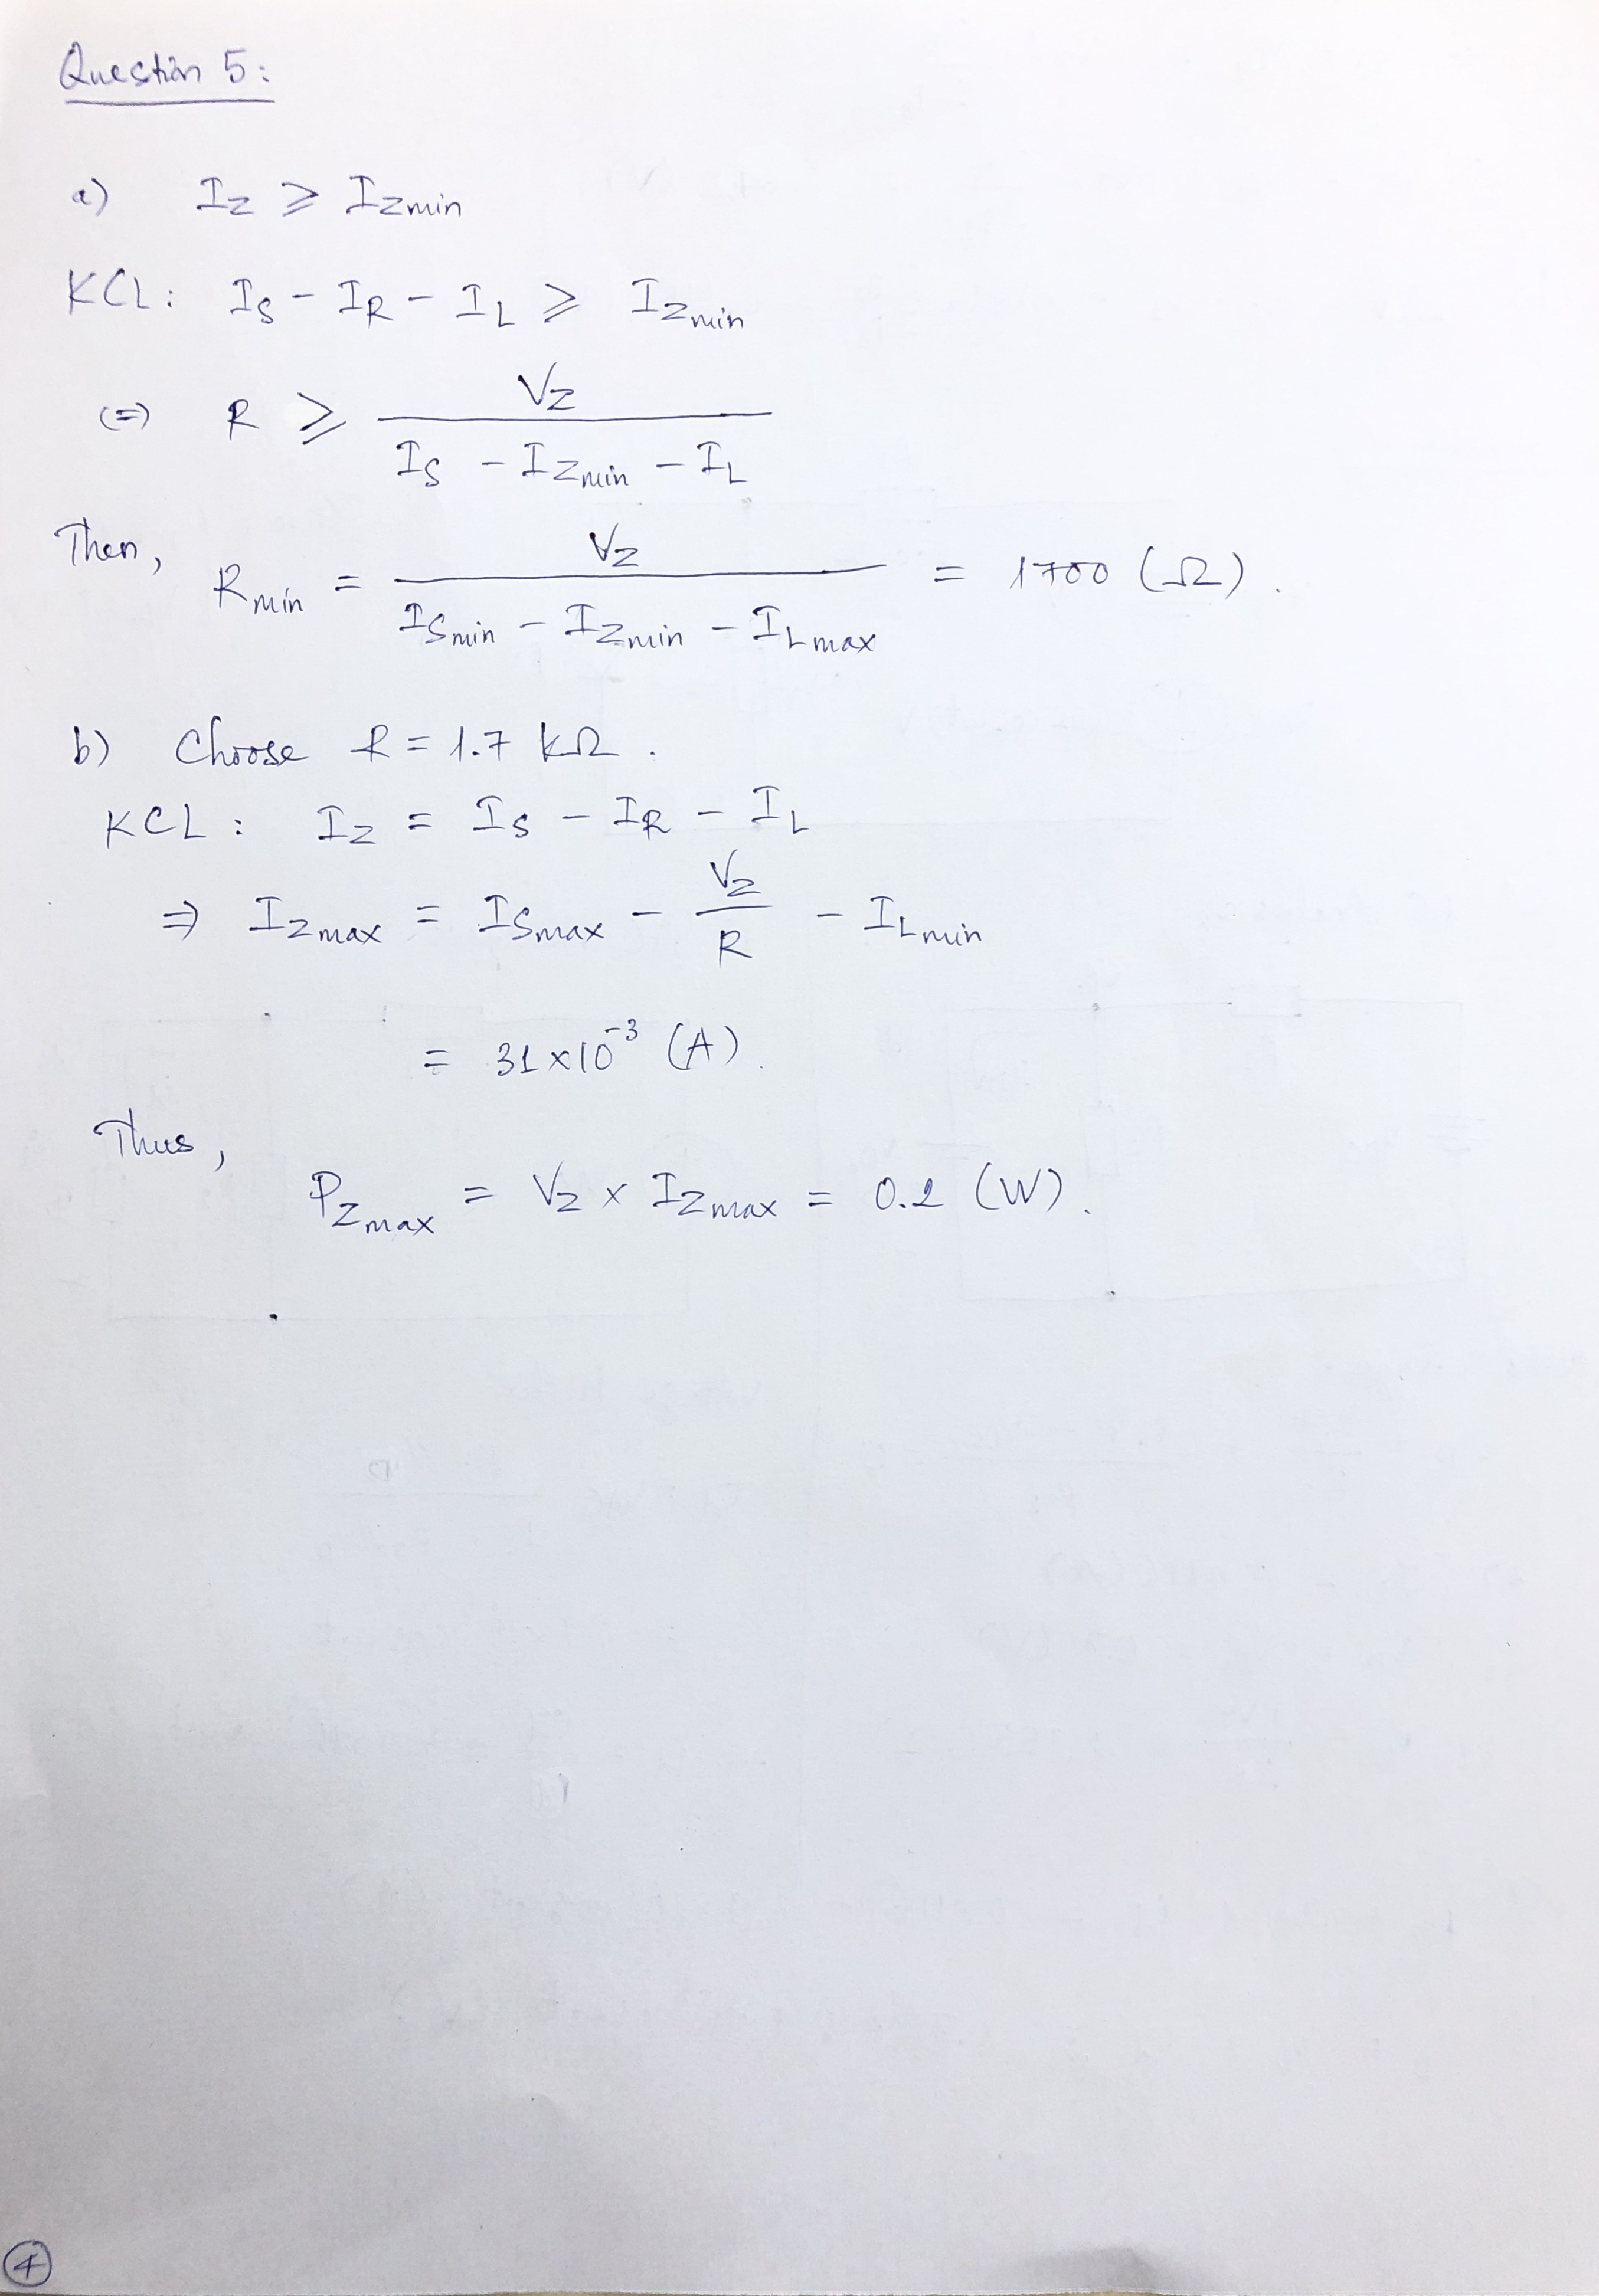 Question 5:
a) Iz ⩾ Izmin
KCL: Is - IR - IL ⩾ Izmin
(=) R ⩾ Vz / (Is - Izmin - IL)
Then, Rmin = Vz / (Ismin - Izmin - ILmax) = 1700 (Ω).
b) Choose R = 1.7 kΩ.
KCL: Iz = Is - IR - IL
⇒ Izmax = Ismax - Vz / R - ILmin
= 31×10⁻³ (A).
Thus,
Pzmax = Vz × Izmax = (W).
4